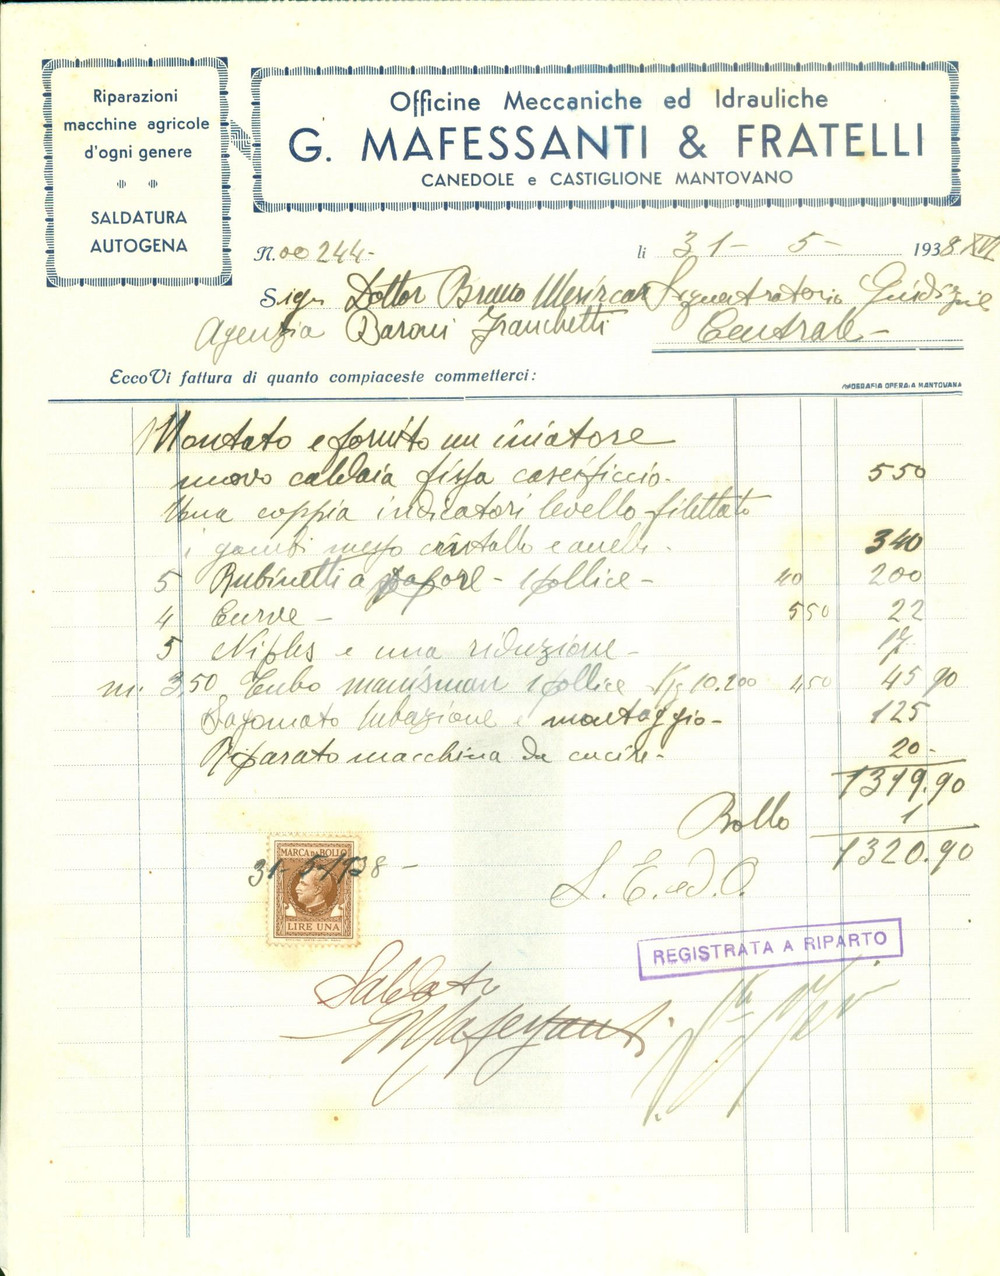 Riparazioni
macchine agricole
d'ogni genere
SALDATURA
AUTOGENA
Officine Meccaniche ed Idrauliche
G. MAFESSANTI & FRATELLI
CANEDOLE e CASTIGLIONE MANTOVANO
N. 00244- li 31- 5- 1938 XVI
Sigr Dottor Bruno Sequestratario Giudiziale
Agenzia Baroni Franchetti Centrale-
EccoVi fattura di quanto compiaceste commetterci:
TIPOGRAFIA OPERAIA MANTOVANA
1 Montato e fornito un iniatore
nuovo caldaia fissa caseificcio. 550
Una coppia indicatori levello filettato
i gambi mezzo cristallo e anelli. 340
5 Rubinetti a vapore - 1 pollice - 40 200
4 Curve - 5 50 22
5 Niples e una riduzione - 17
m. 3,50 Tubo manisman 1 pollice Kg 10.200 4,50 45 90
Sagomato tubazione e montaggio- 125
Riparato macchina da cucire- 20-
1319.90
Bollo 1
1320.90
S. E. ed. O.
MARCA DA BOLLO
31-5-1938-
LIRE UNA
REGISTRATA A RIPARTO
Saldato
Mafessanti